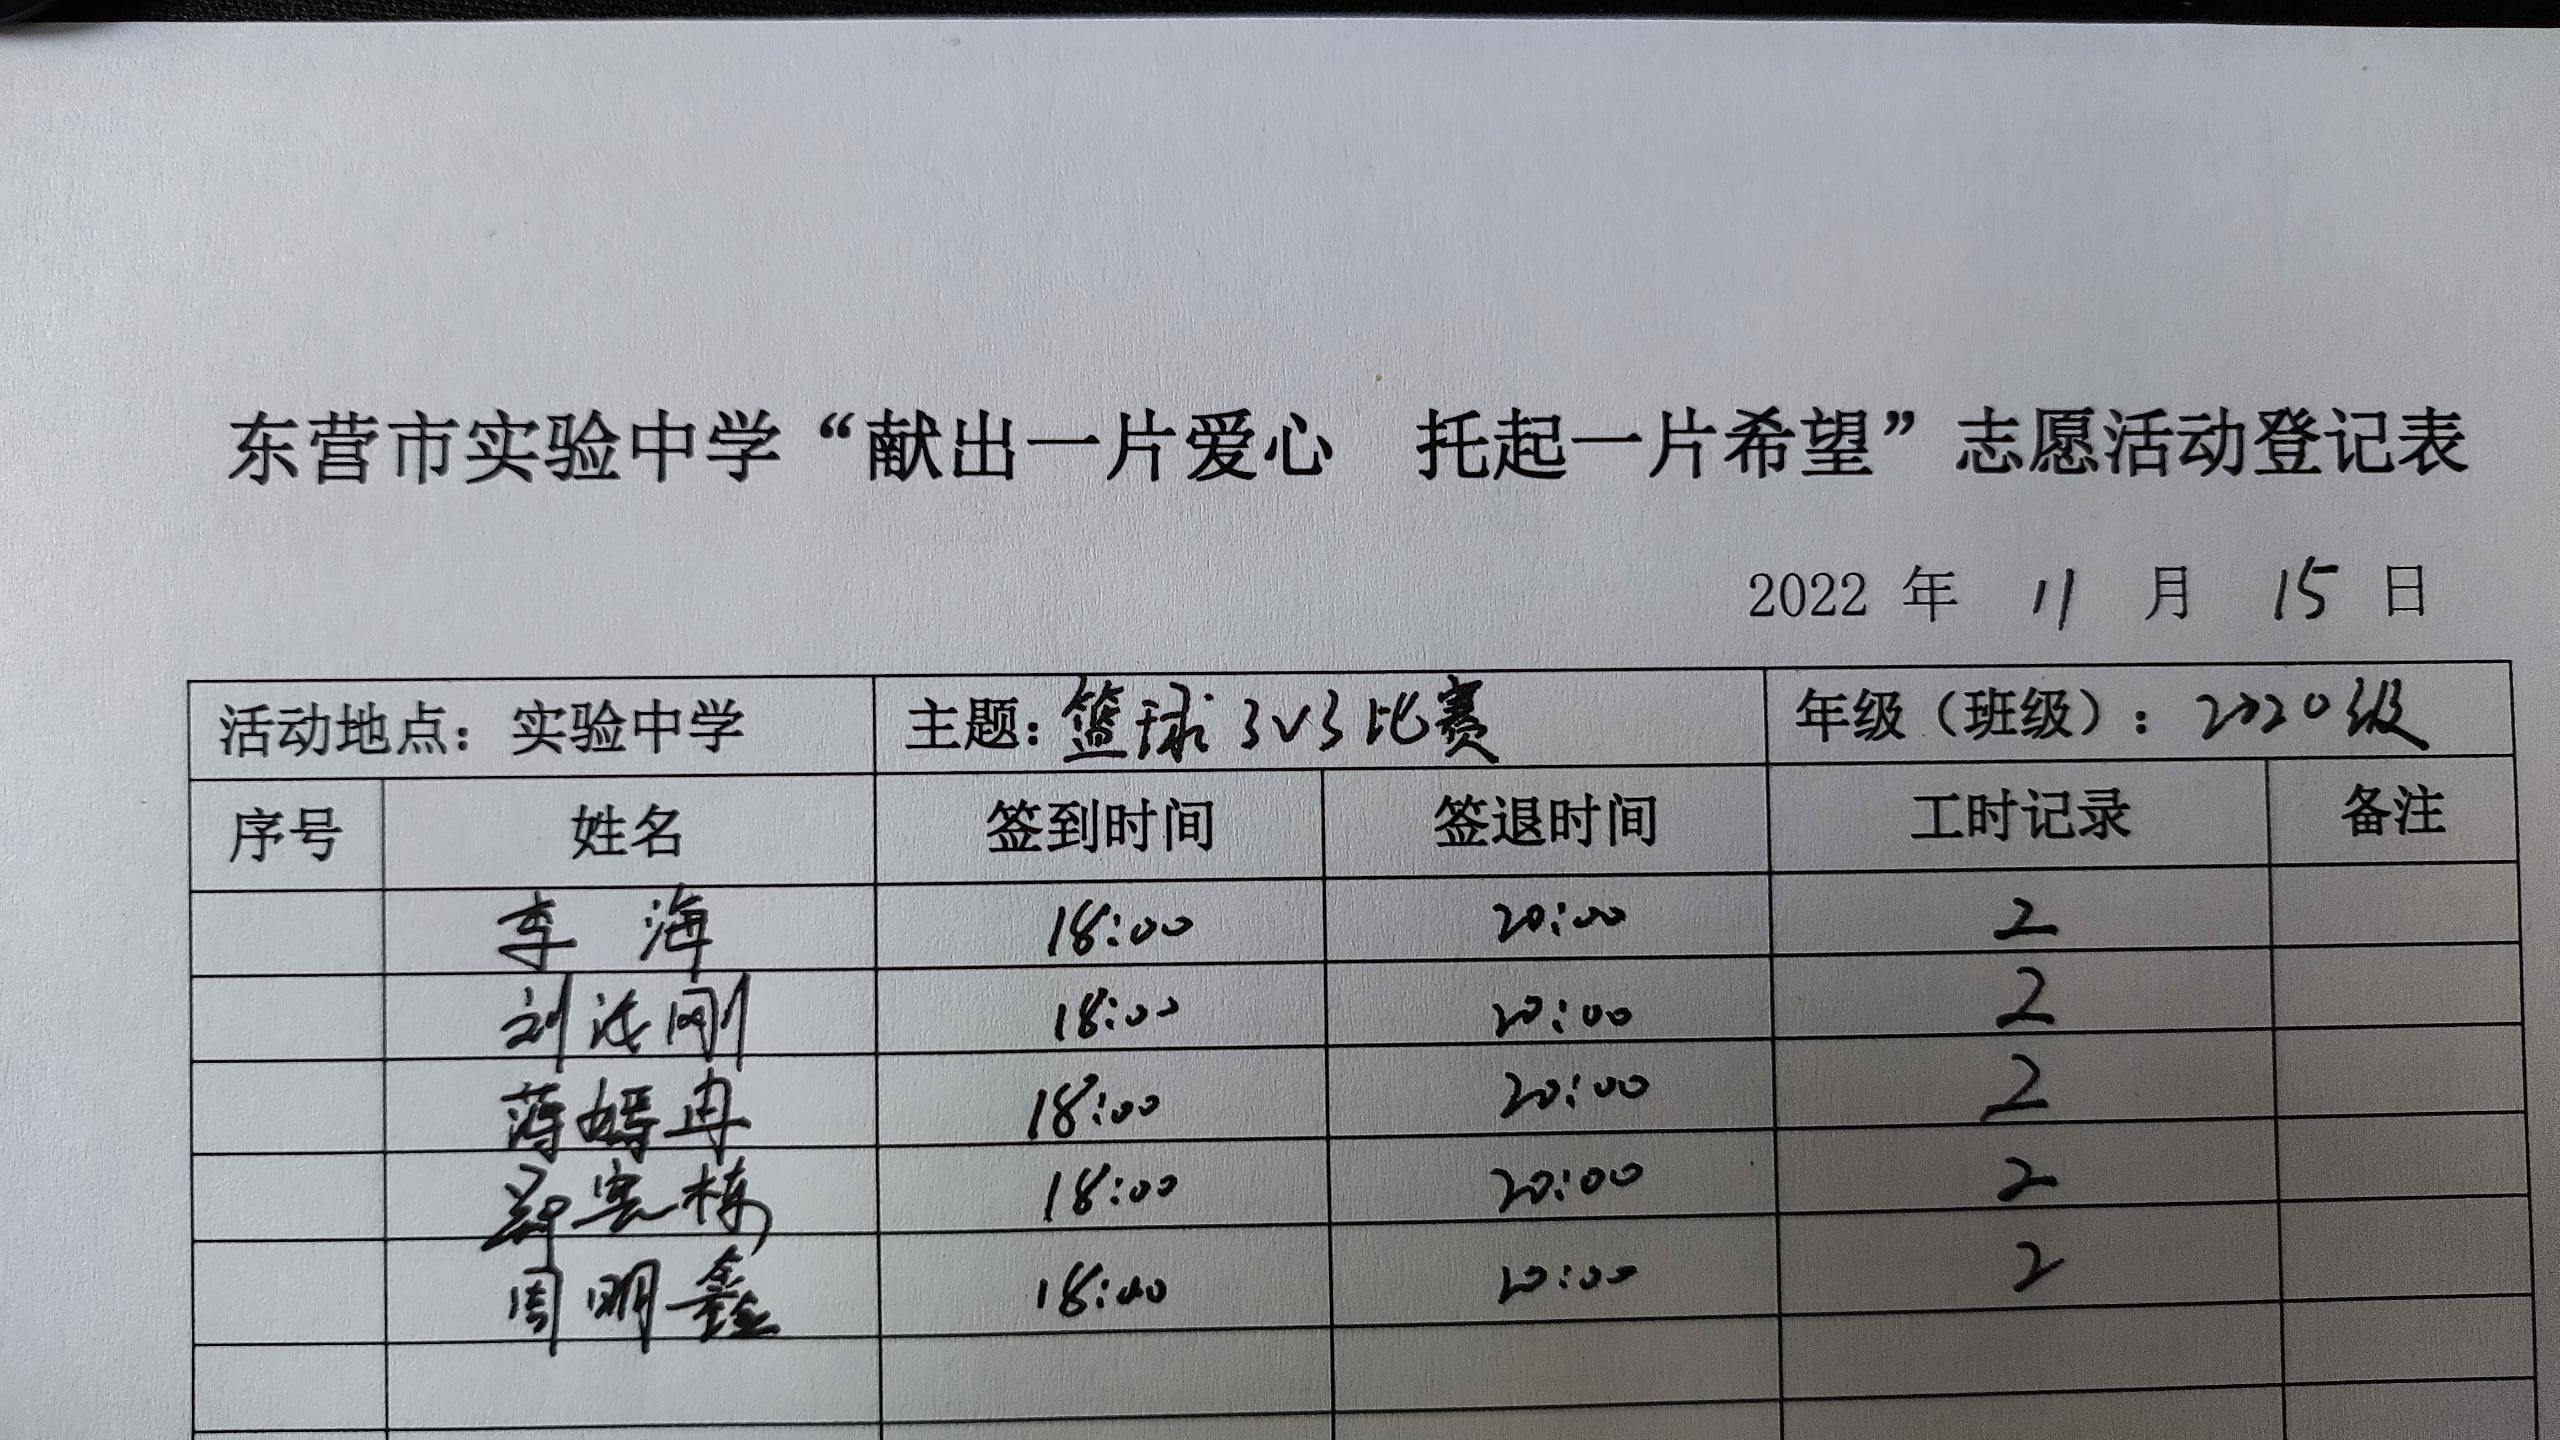 东营市实验中学“献出一片爱心 托起一片希望”志愿活动登记表
2022 年 11 月 15 日
活动地点：实验中学 主题：篮球3V3比赛 年级（班级）：2020级
序号 姓名 签到时间 签退时间 工时记录 备注
李海 18:00 20:00 2
刘 刚 18:00 20:00 2
蒋嫣冉 18:00 20:00 2
郑 栋 18:00 20:00 2
周明鑫 18:00 20:00 2